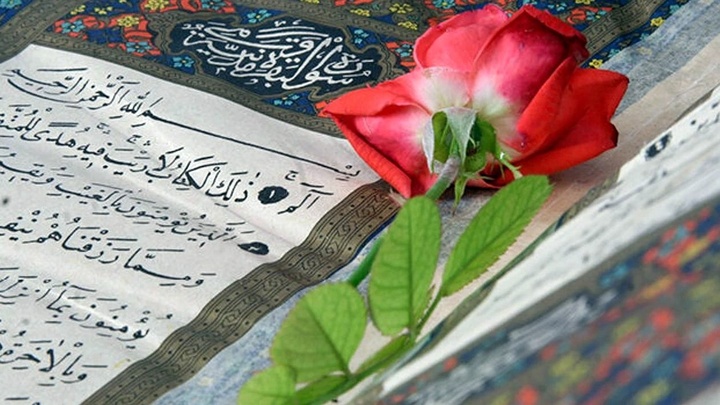 سورة البقرة
بِسْمِ اللهِ الرَّحْمٰنِ الرَّحيمِ
الٓمٓ ١ ذٰلِكَ الْكِتابُ لا رَيْبَ فيهِ هُدًى لِلْمُتَّقـ
اَلَّذينَ يُؤْمِنُونَ بِالْغَيْبِ وَيُقيـ
وَمِمّا رَزَقْناهُمْ يُنْفِقُـ
يُؤْمِنُونَ بِما اُنْزِلَ
وَبِالْاٰخِرَةِ هُـ